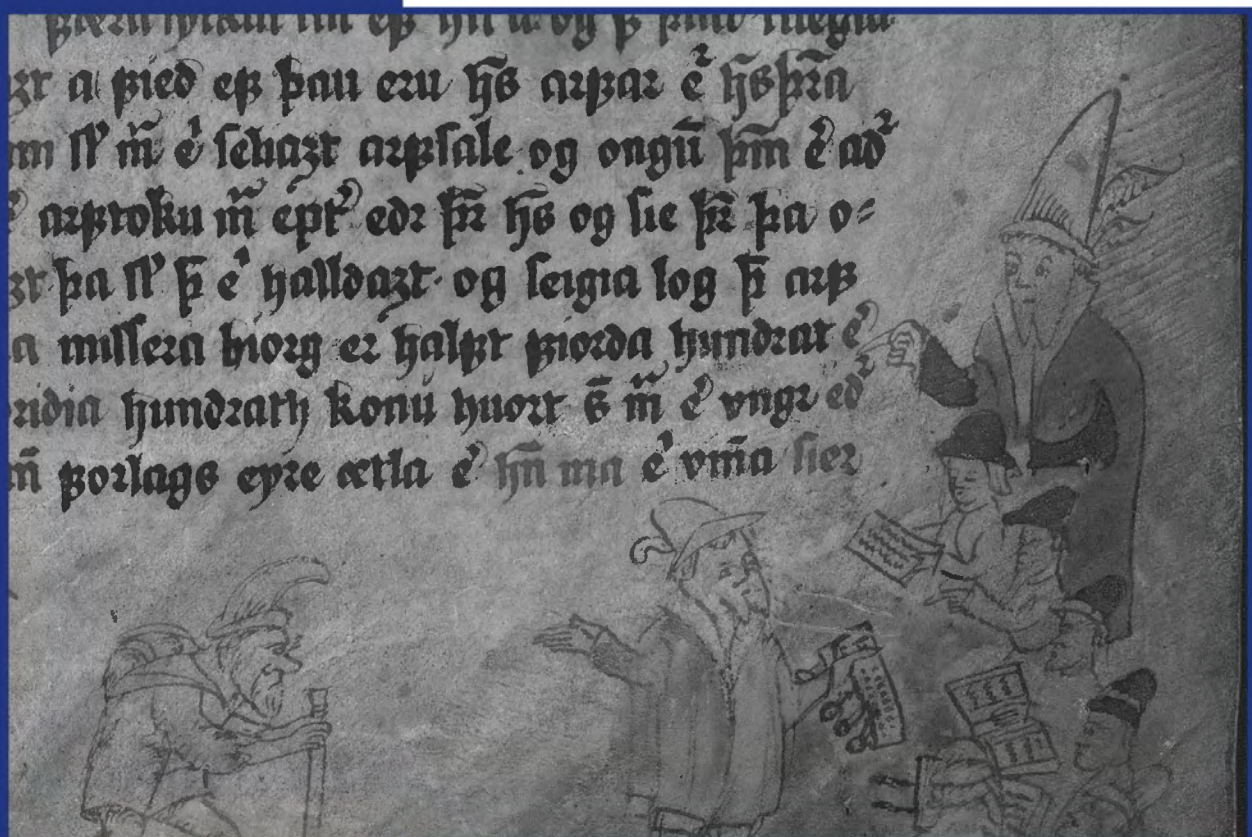 zt a ꝼied eꝼ þau eru h̅s arꝼar eͬ h̅s þr̅a
ſl' m̅ e' ſehazt arꝼſale og ongu̅ þm̅ e' adͬ
arꝼtoku m̅ ept' edr þr̅ h̅s og ſie þr̅ þa o⸗
zt þa ſl' þ̅ e' halldazt. og ſeigia log þ̅ arꝼ
a miſſera biorg er halꝼt ꝼiorda hundrat e'
ridia hundrath konu̅ huort s̅ m̅ e' vngr edͬ
n̅ ꝼorlags eyre ætla e' hn̅ ma e' vm̅a ſier